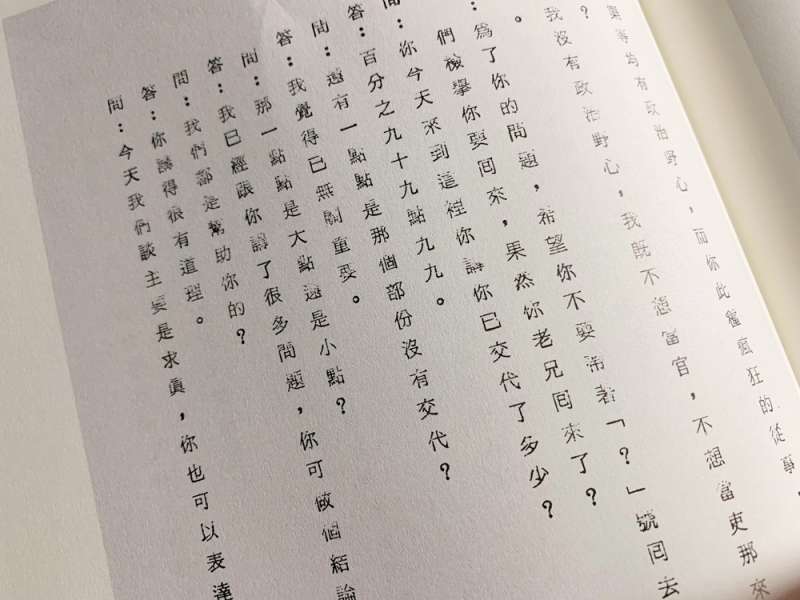 均有政治野心，而你此種瘋狂的從事，
？
我沒有政治野心，我既不想當官，不想當吏那來
。
：為了你的問題，希望你不要帶著「？」號回去
們檢舉你要回來，果然你老兄回來了？
問：你今天來到這裡你講你已交代了多少？
答：百分之九十九點九九。
問：還有一點點是那個部份沒有交代？
答：我覺得已無關重要。
問：那一點點是大點還是小點？
答：我已經跟你講了很多問題，你可做個結論
問：我們都是幫助你的？
答：你講得很有道理。
問：今天我們談主要是求真，你也可以表達